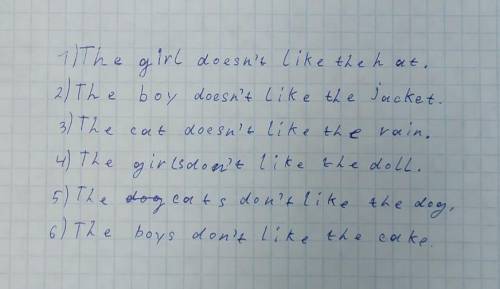 1) The girl doesn't like the hat.
2) The boy doesn't like the jacket.
3) The cat doesn't like the rain.
4) The girls don't like the doll.
5) The dog cats don't like the dog.
6) The boys don't like the cake.